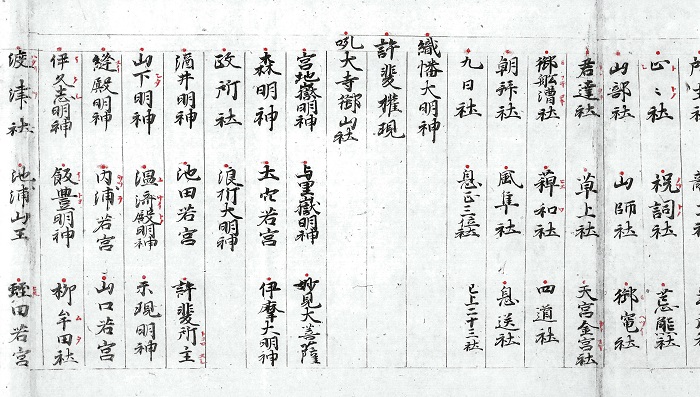 正〻社 祝詞社
山部社 山師社 御竃社
君達社 草上社 天宮金宮社
御舩漕社 草和社 四道社
朝拜社 風隼社 息送社
九日社 息正三位社 已上二十三社
織幡大明神
許斐権現
吼大寺御山社
宮地嶽明神 与里嶽明神 妙見大菩薩
森明神 玉穴若宮 伊摩大明神
政所社 浪折大明神
酒井明神 池田若宮 許斐所主
山下明神 温済殿明神 示現明神
縫殿明神 内浦若宮 山口若宮
伊久志明神 飯豊明神 柳牟田社
波津社 池浦山王 蛭田若宮